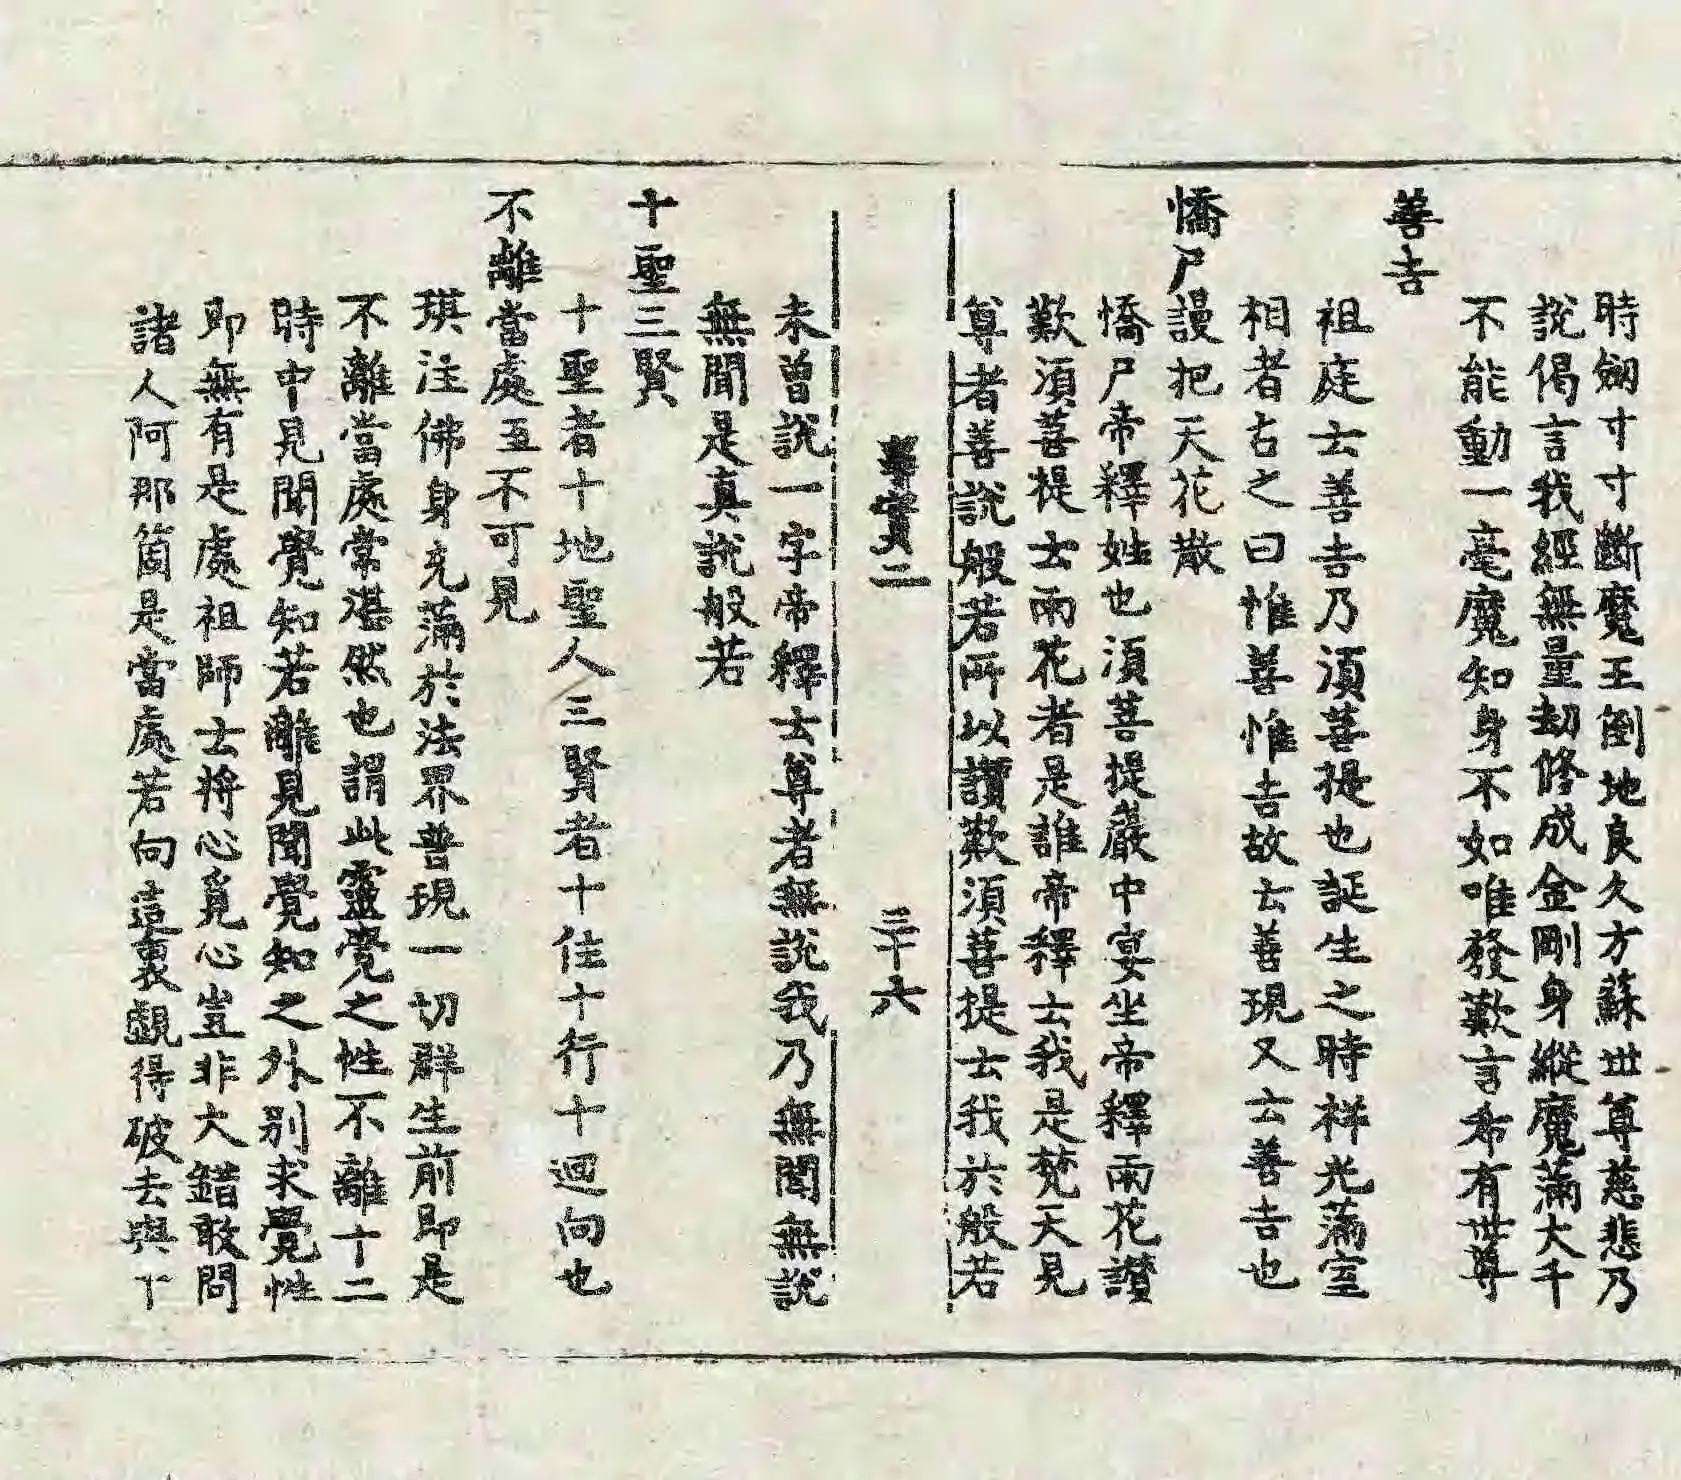 時劒寸寸斷魔王倒地良久方蘇世尊慈悲乃
說偈言我經無量劫修成金剛身縱魔滿大千
不能動一毫魔知身不如唯發歎言希有世尊
善吉
祖庭云善吉乃須菩提也誕生之時祥光滿室
相者占之曰惟善惟吉故云善現又云善吉也
憍尸謾把天花散
憍尸帝釋姓也須菩提巖中宴坐帝釋雨花讃
歎須菩提士雨花者是誰帝釋士我是梵天見
尊者善說般若所以讚歎須菩提士我於般若
二
三十六
未曾說一字帝釋士尊者無說我乃無聞無說
無聞是真說般若
十聖三賢
十聖者十地聖人三賢者十住十行十迴向也
不離當處互不可見
琪注佛身充滿於法界普現一切群生前即是
不離當處常湛然也謂此靈覺之性不離十二
時中見聞覺知若離見聞覺知之外別求覺性
即無有是處祖師士將心覓心豈非大錯敢問
諸人阿那箇是當處若向這裏覰得破去與十